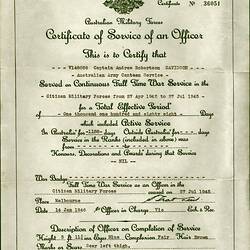 No 36051
Australian Military Forces
Certificate of Service of an Officer
This is to Certify that
VX48088 Captain Andrew Robertson DAVIDSON
Australian Army Canteen Service
Served on Continuous Full Time War Service in the
Citizen Military Forces from to 27 Jul 1945
for a Total Effective Period
of One thousand one hundred and eighty eight Days
which included Active Service
In Australia for days Outside Australia for days
Service in the Ranks (included in above) was
from to
Honours, Decorations and Awards during that Service
NIL
War Badge
Full Time War Service as an Officer in the
Citizen Military Forces 27 Jul 1945
Place Melbourne
Date 14 Jan 1946 Officer in Charge, Vic Ech & Rec
Description of Officer on Completion of Service
Height 5 ft Eyes Complexion Fair Hair Brown
Marks or Scars Scar left thigh